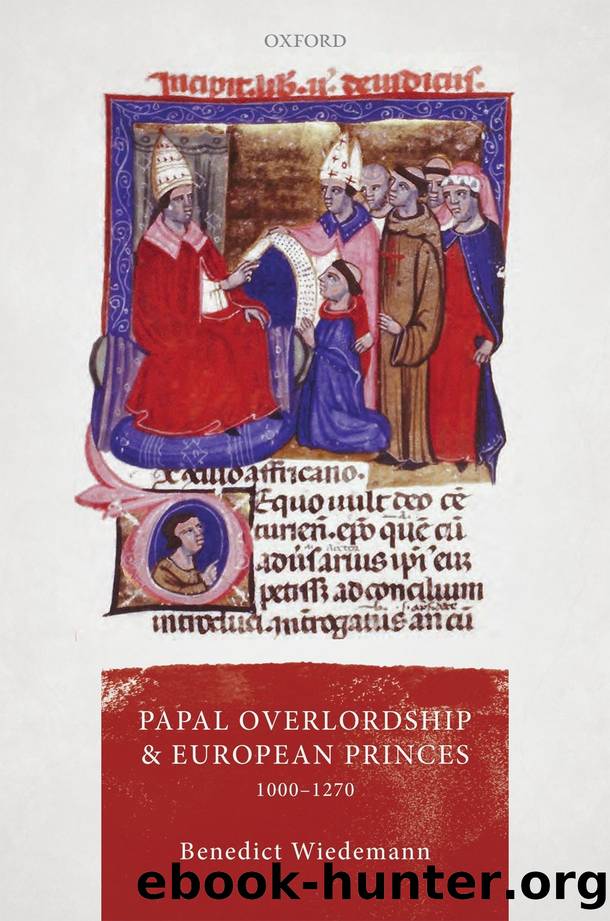 OXFORD
Incipit. lib. ii. de iudiciis.
affricano.
Equo uult deo cē
turień. ep̄o quē cū
aduīsarius ip̄i' eius
petiſſȝ ad concilium
introduci. Intrrogatus an cū
PAPAL OVERLORDSHIP
& EUROPEAN PRINCES
1000–1270
Benedict Wiedemann
ebook-hunter.org